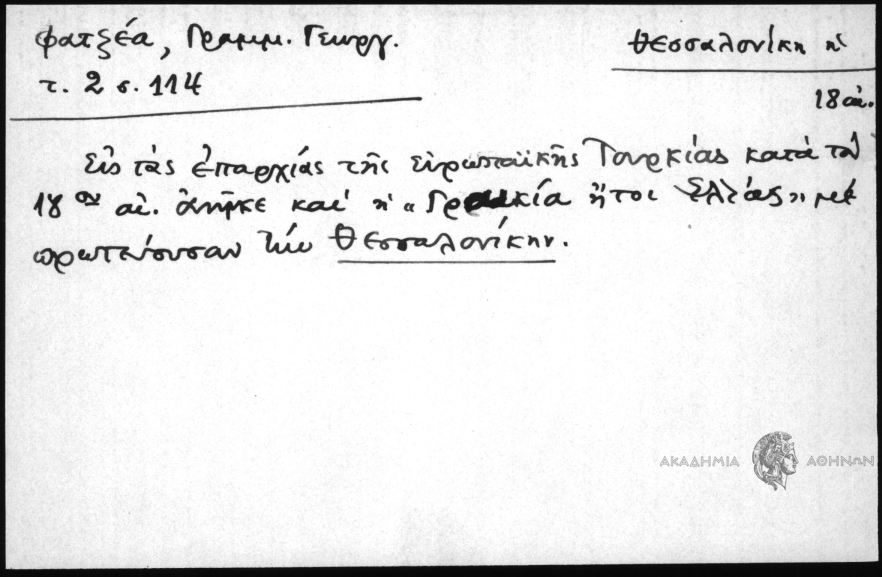 Φατζέα, Γραμμ. Γεωργ.
τ. 2 σ. 114
Θεσσαλονίκη ἡ
18 αἰ.
Εἰς τὰς ἐπαρχίας τῆς εὐρωπαϊκῆς Τουρκίας κατὰ τὸν
18ον αἰ. ἀνῆκε καὶ ἡ «Γραικία ἤτοι Ἑλλάς» μὲ
πρωτεύουσαν τὴν Θεσσαλονίκην.
ΑΚΑΔΗΜΙΑ ΑΘΗΝΩΝ